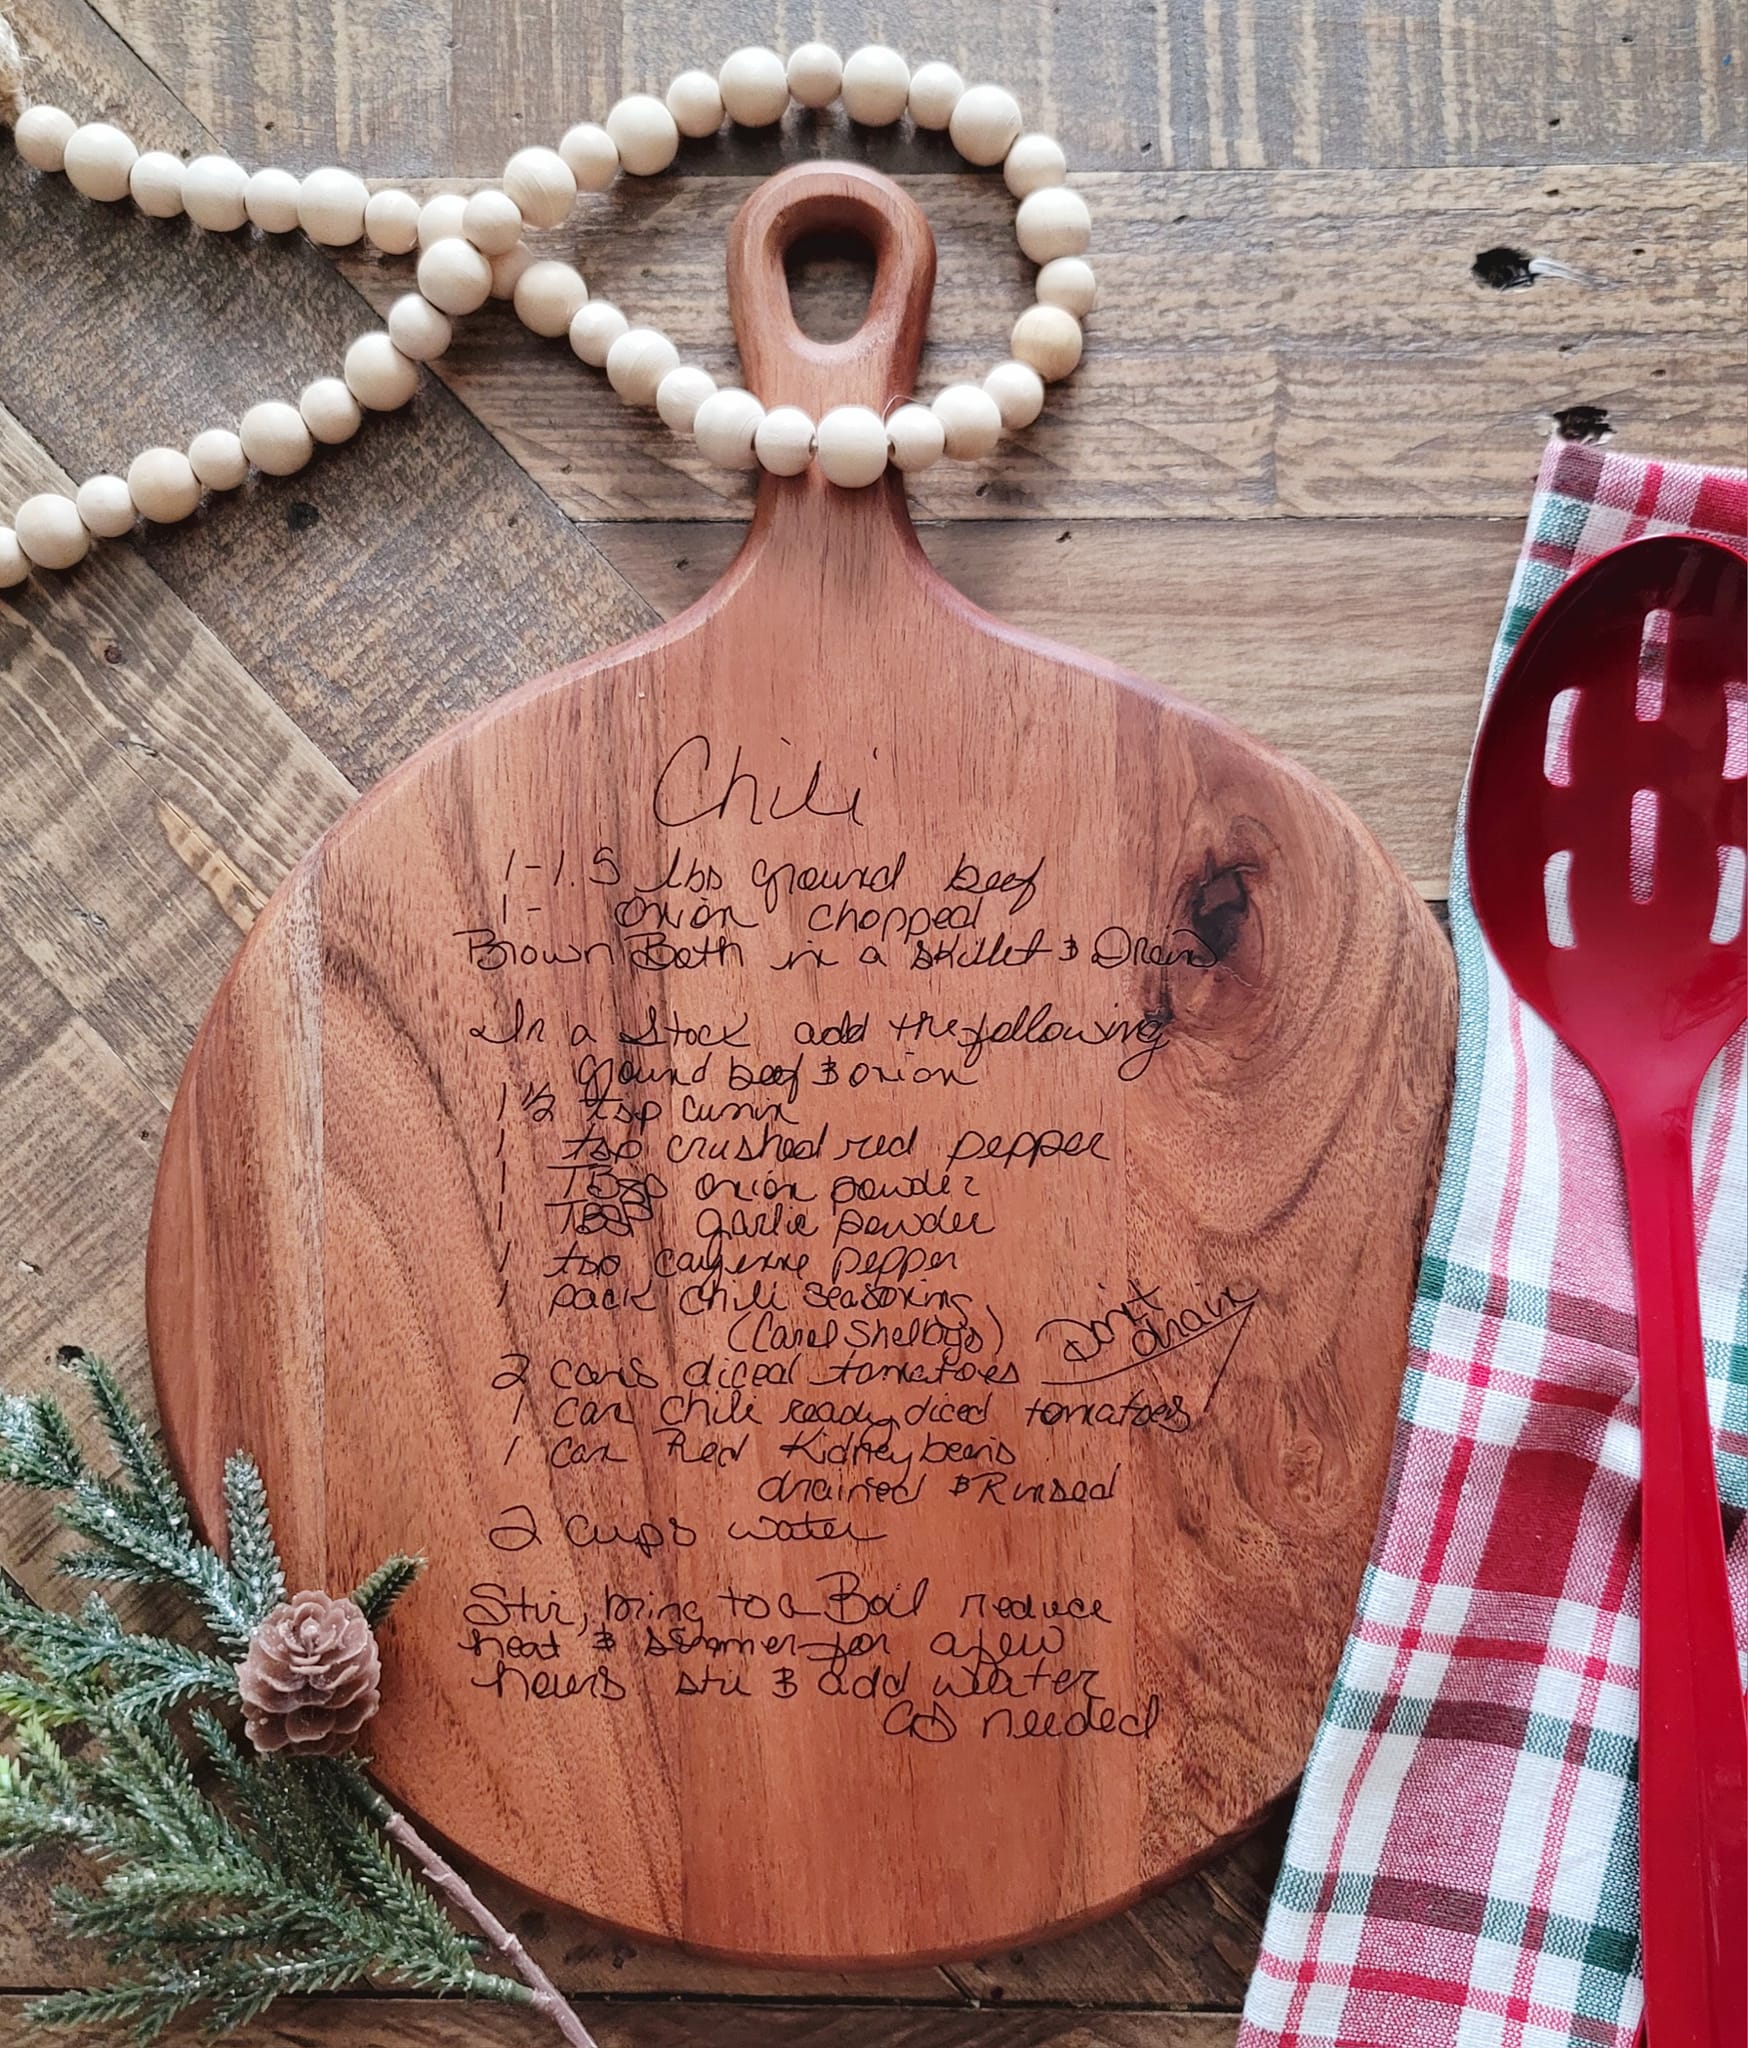 Chili
1-1.5 lbs ground beef
1- onion chopped
Brown Both in a skillet & Drain
In a stock add the following
ground beef & onion
1 1/2 tsp cumin
1 tsp crushed red pepper
1 TBsp onion powder
1 TBSP garlic powder
1 tsp cayenne pepper
1 pack chili seasoning
(Carol Shelbys)
Don't
drain
2 cans diced tomatoes
1 can chili ready diced tomatoes
1 can Red Kidney beans
drained & Rinsed
2 cups water
Stir, bring to a Boil reduce
heat & simmer for a few
hours stir & add water
as needed